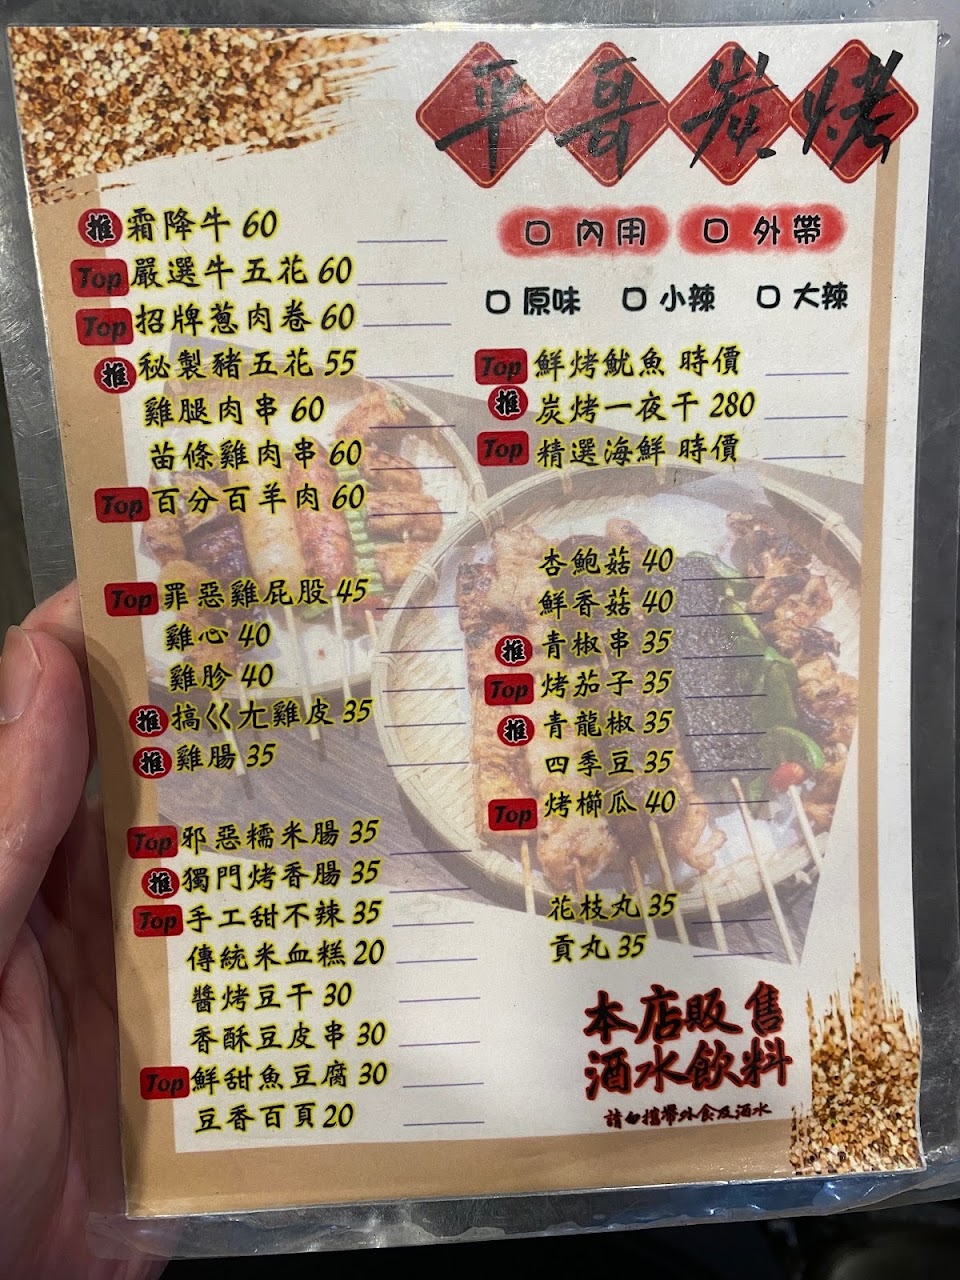 平哥炭烤
口 內用 口 外帶
口 原味 口 小辣 口 大辣
推 霜降牛 60
Top 嚴選牛五花 60
Top 招牌蔥肉卷 60
推 秘製豬五花 55
雞腿肉串 60
苗條雞肉串 60
Top 百分百羊肉 60
Top 罪惡雞屁股 45
雞心 40
雞胗 40
推 搞ㄍㄤ雞皮 35
推 雞腸 35
Top 邪惡糯米腸 35
推 獨門烤香腸 35
Top 手工甜不辣 35
傳統米血糕 20
醬烤豆干 30
香酥豆皮串 30
Top 鮮甜魚豆腐 30
豆香百頁 20
Top 鮮烤魷魚 時價
推 炭烤一夜干 280
Top 精選海鮮 時價
杏鮑菇 40
鮮香菇 40
推 青椒串 35
Top 烤茄子 35
推 青龍椒 35
四季豆 35
Top 烤櫛瓜 40
花枝丸 35
貢丸 35
本店販售
酒水飲料
請勿攜帶外食及酒水